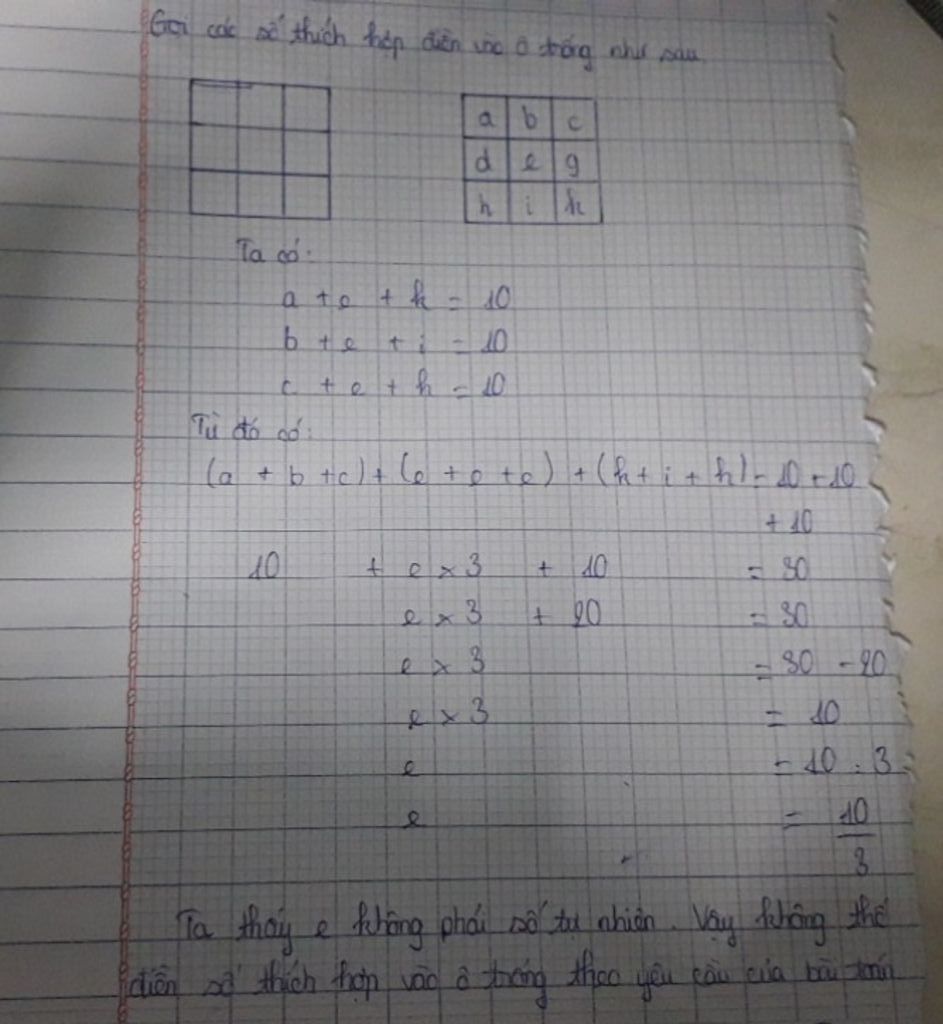 Gọi các số thích hợp điền vào ô trống như sau
a b c
d e g
h i k
Ta có:
a + e + k = 10
b + e + i = 10
c + e + h = 10
Từ đó có:
(a + b + c) + (e + e + e) + (h + i + k) = 10 + 10
+ 10
10 + e × 3 + 10 = 30
e × 3 + 20 = 30
e × 3 = 30 - 20
e × 3 = 10
e = 10 : 3
e = 10/3
Ta thấy e không phải số tự nhiên. Vậy không thể
điền số thích hợp vào ô trống theo yêu cầu của bài toán